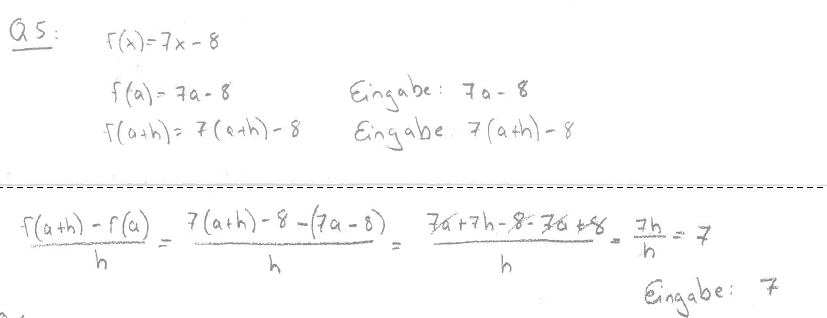 Q5:
f(x)=7x-8
f(a)=7a-8 Eingabe: 7a-8
f(a+h)=7(a+h)-8 Eingabe: 7(a+h)-8
(f(a+h)-f(a))/h = (7(a+h)-8-(7a-8))/h = (7a+7h-8-7a+8)/h = 7h/h = 7
Eingabe: 7